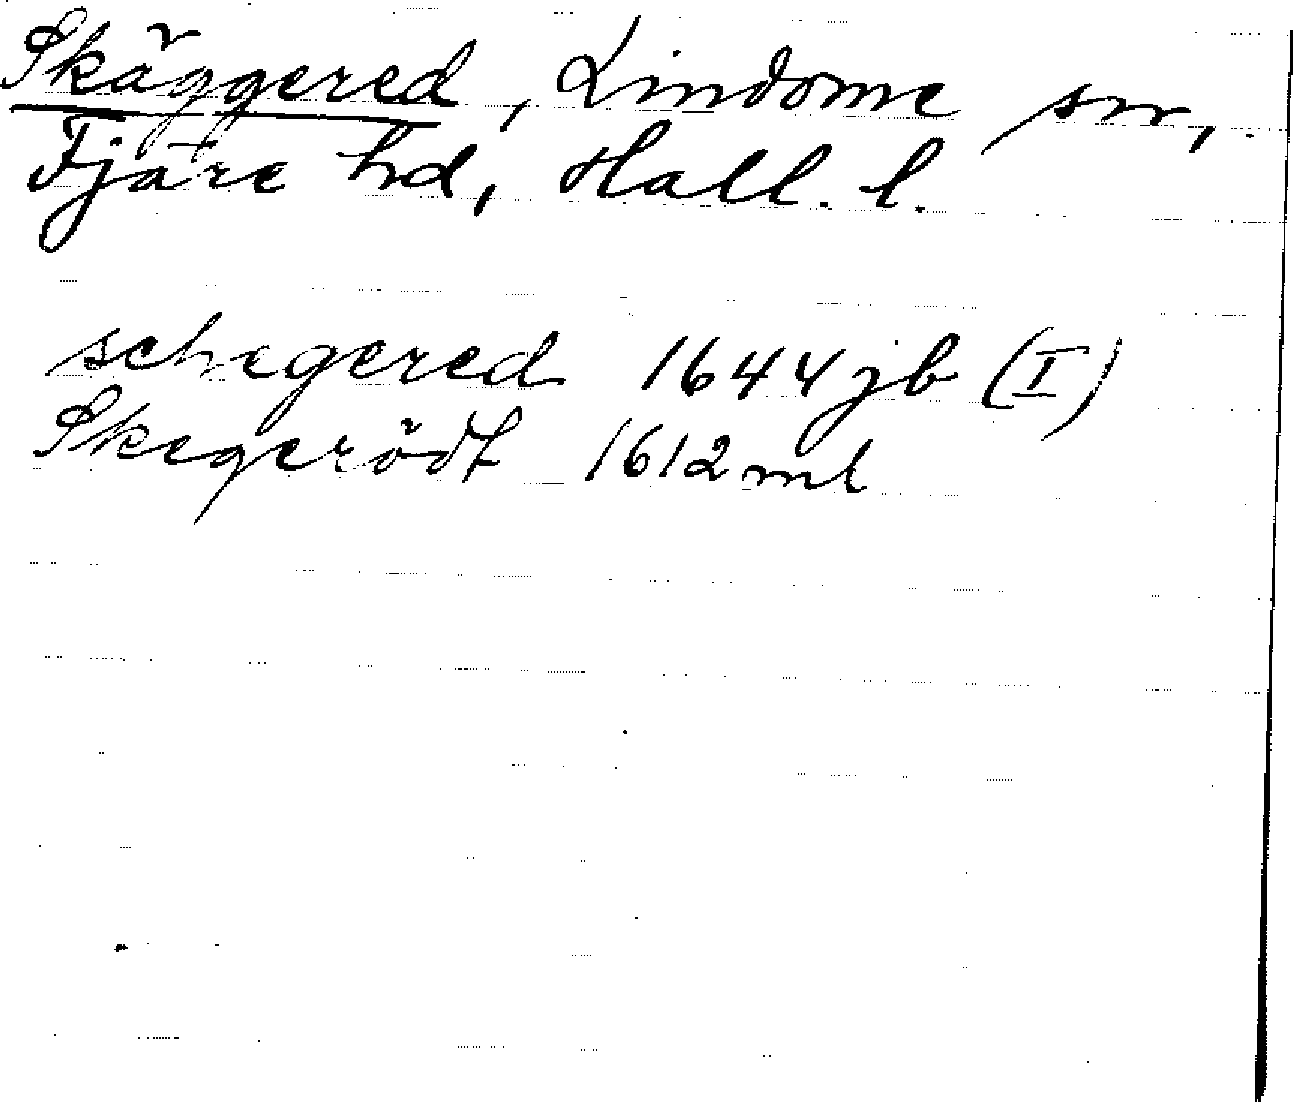 Skäggered, Lindome sn,
Fjäre hd, Hall. l.
schegered 1644 jb (I)
Skegerödt 1612 ml